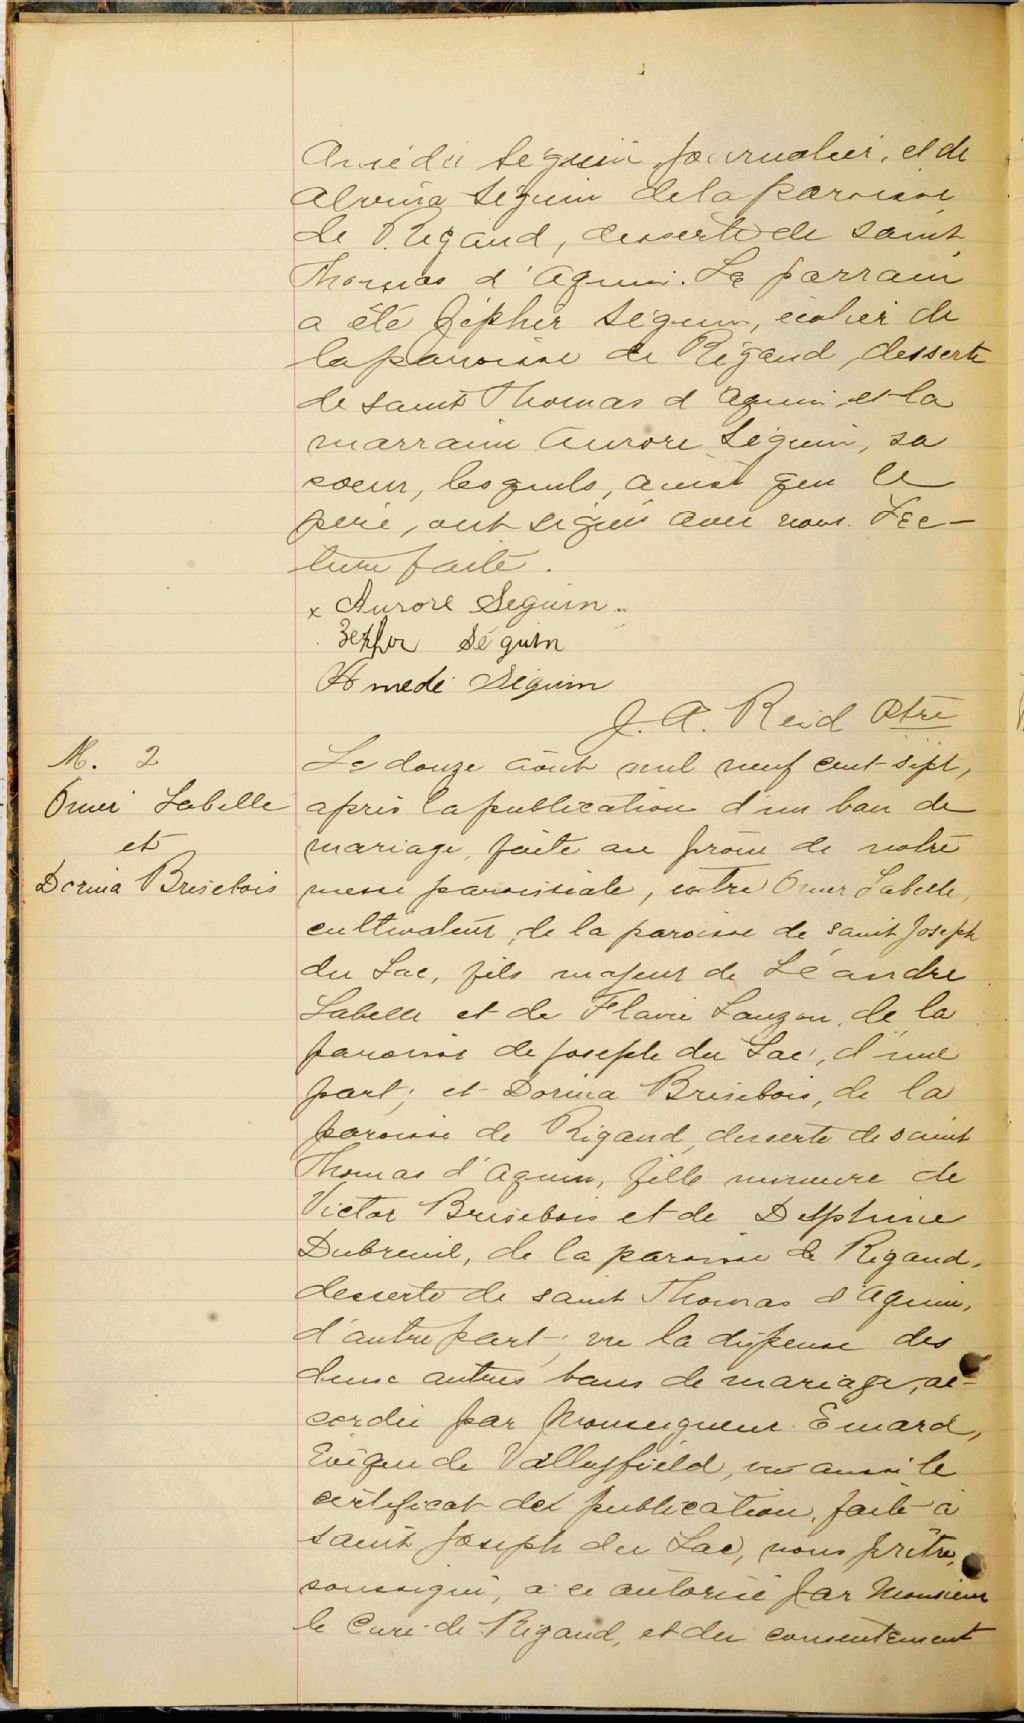 Amédée Séguin, journalier, et de
Alvina Séguin de la paroisse
de Rigaud, desserte de saint
Thomas d'Aquin. Le parrain
a été Zéphir Séguin, écolier de
la paroisse de Rigaud, desserte
de saint Thomas d'Aquin et la
marraine Aurore Séguin, sa
soeur, lesquels, ainsi que le
père, ont signé avec nous. Lec-
ture faite.
x Aurore Seguin
Zephir Séguin
Amedé Séguin
J. A. Reid Ptre
M. 2
Omer Labelle
et
Dorina Brisebois
Le douze août mil neuf cent-sept,
après la publication d'un ban de
mariage, faite au prône de notre
messe paroissiale, entre Omer Labelle,
cultivateur, de la paroisse de saint Joseph
du Lac, fils majeur de Léandre
Labelle et de Flavie Lauzon, de la
paroisse de Joseph du Lac, d'une
part; et Dorina Brisebois, de la
paroisse de Rigaud, desserte de saint
Thomas d'Aquin, fille mineure de
Victor Brisebois et de Delphine
Dubreuil, de la paroisse de Rigaud,
desserte de saint Thomas d'Aquin,
d'autre part; vu la dispense des
deux autres bans de mariage, ac-
cordée par Monseigneur Emard,
Evêque de Valleyfield, vu aussi le
certificat de publication, faite à
saint Joseph du Lac, nous prêtre,
soussigné, à ce autorisé par Monsieur
le Curé de Rigaud, et du consentement